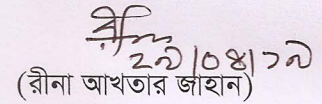 রীনা
২৯/০৪/১৯
(রীনা আখতার জাহান)